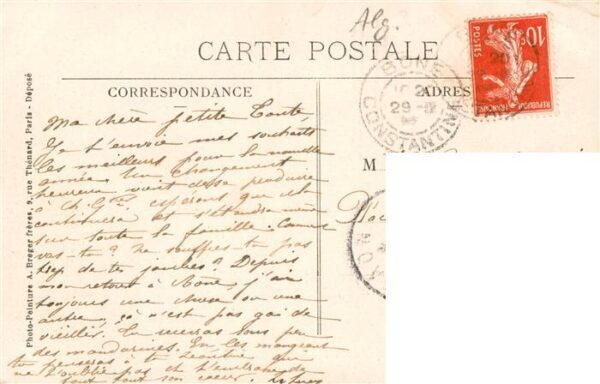 Alg.
CARTE POSTALE
CORRESPONDANCE
ADRES
BÔNE
29
CONSTANTINE
10c
POSTES
REPUBLIQUE FRANÇAISE
M
Photo-Peinture A. Breger frères, 9, rue Thénard, Paris - Déposé
Ma chère petite Tante,
Je t'envoie mes souhaits
les meilleurs pour la nouvelle
année. Un changement
heureux vient de se produire
à espérons que cela
continuera et s'étendra même
sur toute la famille. Comment
vas-tu? Ne souffres-tu pas
trop de tes jambes? Depuis
mon retour à Bône, j'ai
toujours une chose ou une
autre, ça n'est pas gai de
vieillir. Tu recevras sous peu
des mandarines. En les mangeant
tu penseras à ta qui
ne t'oublie pas et t'embrasse de
tout son cœur.